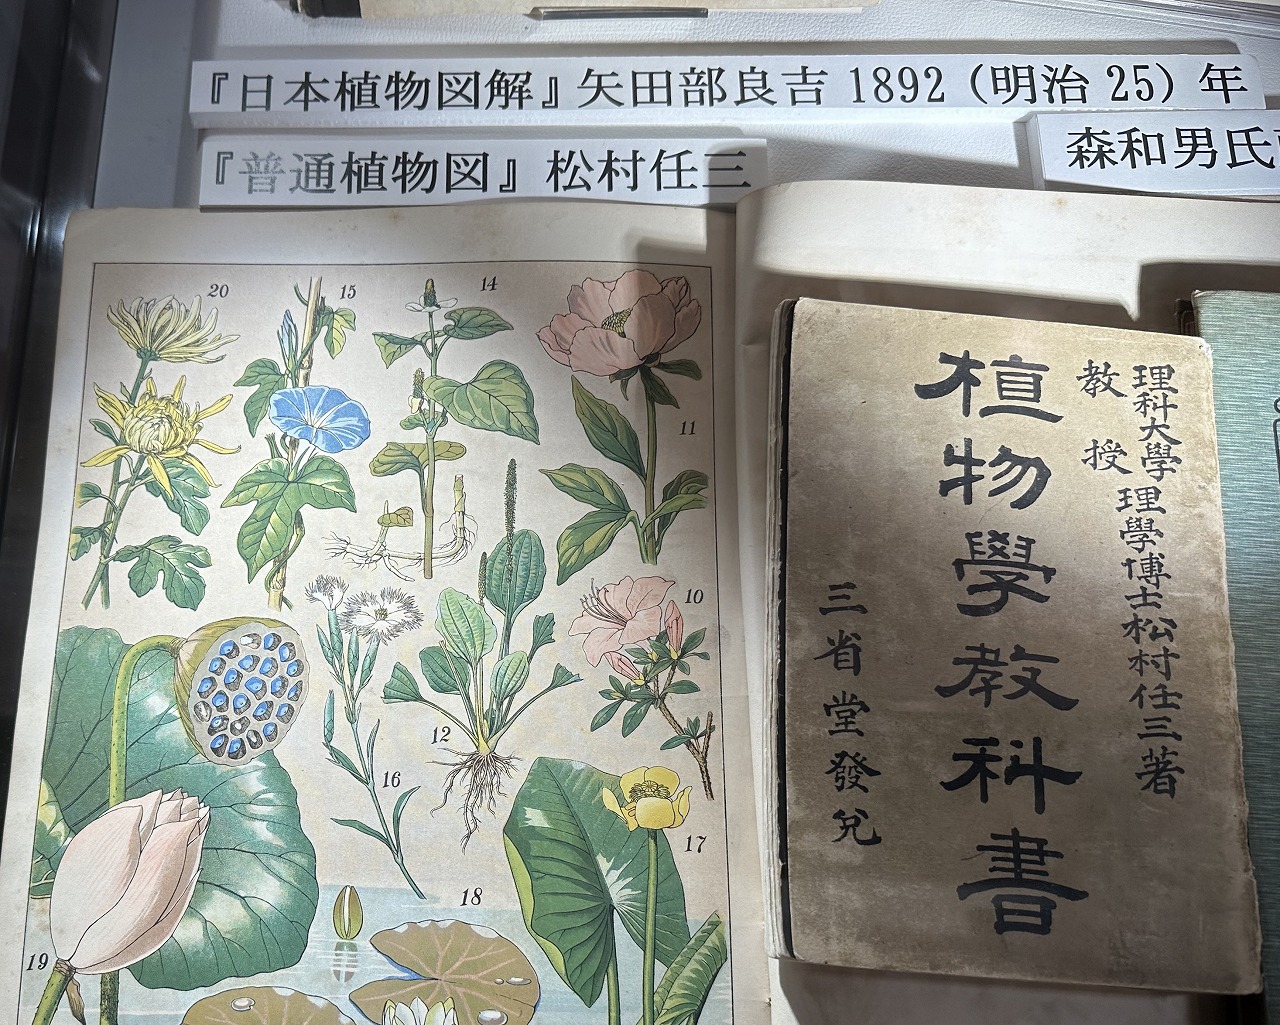 『日本植物図解』矢田部良吉 1892（明治 25）年
『普通植物図』松村任三
森和男氏
20
15
14
11
10
12
16
17
18
19
理科大學
教授
理學博士松村任三著
植物學教科書
三省堂發兌